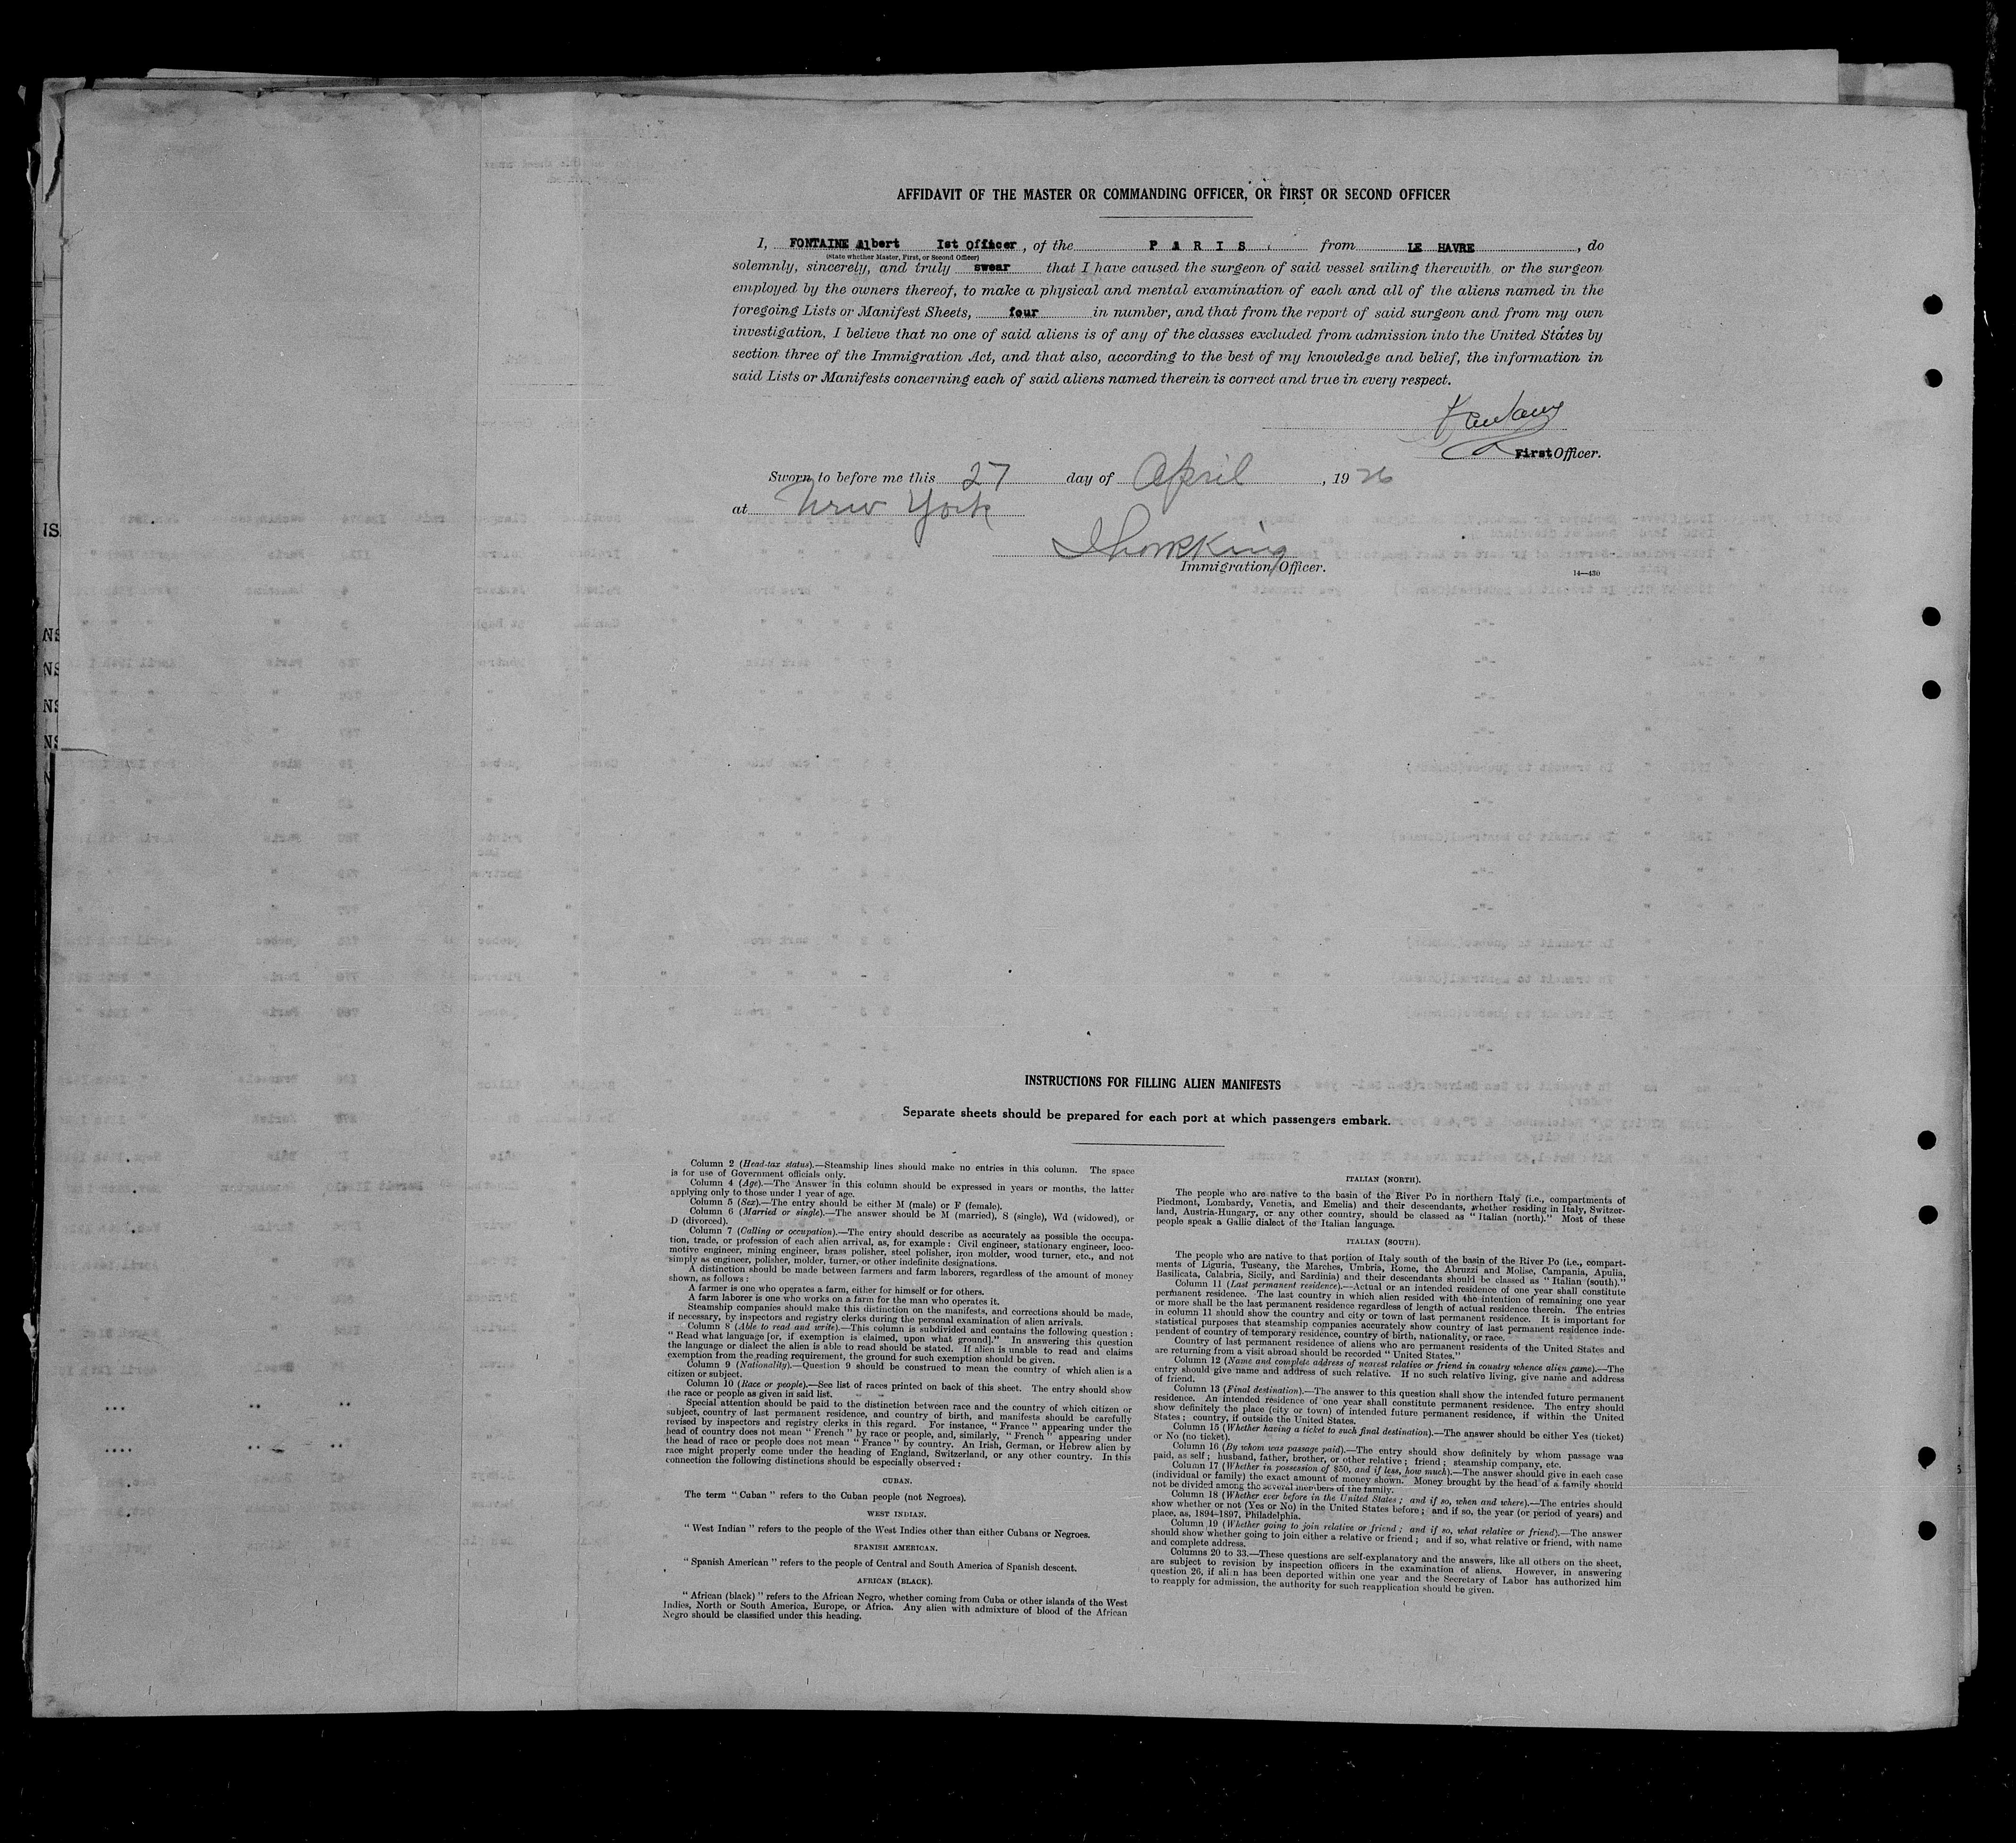 AFFIDAVIT OF THE MASTER OR COMMANDING OFFICER, OR FIRST OR SECOND OFFICER
I, FONTAINE Albert Ist Officer, of the P A R I S from LE HAVRE, do
(State whether Master, First, or Second Officer)
solemnly, sincerely, and truly swear that I have caused the surgeon of said vessel sailing therewith or the surgeon
employed by the owners thereof, to make a physical and mental examination of each and all of the aliens named in the
foregoing Lists or Manifest Sheets, four in number, and that from the report of said surgeon and from my own
investigation, I believe that no one of said aliens is of any of the classes excluded from admission into the United States by
section three of the Immigration Act, and that also, according to the best of my knowledge and belief, the information in
said Lists or Manifests concerning each of said aliens named therein is correct and true in every respect.
First Officer.
Sworn to before me this 27 day of April, 1926
at New York
Immigration Officer.
14—430
INSTRUCTIONS FOR FILLING ALIEN MANIFESTS
Separate sheets should be prepared for each port at which passengers embark.
Column 2 (Head-tax status).—Steamship lines should make no entries in this column. The space
is for use of Government officials only.
Column 4 (Age).—The Answer in this column should be expressed in years or months, the latter
applying only to those under 1 year of age.
Column 5 (Sex).—The entry should be either M (male) or F (female).
Column 6 (Married or single).—The answer should be M (married), S (single), Wd (widowed), or
D (divorced).
Column 7 (Calling or occupation).—The entry should describe as accurately as possible the occupa-
tion, trade, or profession of each alien arrival, as, for example: Civil engineer, stationary engineer, loco-
motive engineer, mining engineer, brass polisher, steel polisher, iron molder, wood turner, etc., and not
simply as engineer, polisher, molder, turner, or other indefinite designations.
A distinction should be made between farmers and farm laborers, regardless of the amount of money
shown, as follows:
A farmer is one who operates a farm, either for himself or for others.
A farm laborer is one who works on a farm for the man who operates it.
Steamship companies should make this distinction on the manifests, and corrections should be made,
if necessary, by inspectors and registry clerks during the personal examination of alien arrivals.
Column 8 (Able to read and write).—This column is subdivided and contains the following question:
"Read what language [or, if exemption is claimed, upon what ground]." In answering this question
the language or dialect the alien is able to read should be stated. If alien is unable to read and claims
exemption from the reading requirement, the ground for such exemption should be given.
Column 9 (Nationality).—Question 9 should be construed to mean the country of which alien is a
citizen or subject.
Column 10 (Race or people).—See list of races printed on back of this sheet. The entry should show
the race or people as given in said list.
Special attention should be paid to the distinction between race and the country of which citizen or
subject, country of last permanent residence, and country of birth, and manifests should be carefully
revised by inspectors and registry clerks in this regard. For instance, "France" appearing under the
head of country does not mean "French" by race or people, and, similarly, "French" appearing under
the head of race or people does not mean "France" by country. An Irish, German, or Hebrew alien by
race might properly come under the heading of England, Switzerland, or any other country. In this
connection the following distinctions should be especially observed:
CUBAN.
The term "Cuban" refers to the Cuban people (not Negroes).
WEST INDIAN.
"West Indian" refers to the people of the West Indies other than either Cubans or Negroes.
SPANISH AMERICAN.
"Spanish American" refers to the people of Central and South America of Spanish descent.
AFRICAN (BLACK).
"African (black)" refers to the African Negro, whether coming from Cuba or other islands of the West
Indies, North or South America, Europe, or Africa. Any alien with admixture of blood of the African
Negro should be classified under this heading.
ITALIAN (NORTH).
The people who are native to the basin of the River Po in northern Italy (i.e., compartments of
Piedmont, Lombardy, Venetia, and Emelia) and their descendants, whether residing in Italy, Switzer-
land, Austria-Hungary, or any other country, should be classed as "Italian (north)." Most of these
people speak a Gallic dialect of the Italian language.
ITALIAN (SOUTH).
The people who are native to that portion of Italy south of the basin of the River Po (i.e., compart-
ments of Liguria, Tuscany, the Marches, Umbria, Rome, the Abruzzi and Molise, Campania, Apulia,
Basilicata, Calabria, Sicily, and Sardinia) and their descendants should be classed as "Italian (south)."
Column 11 (Last permanent residence).—Actual or an intended residence of one year shall constitute
permanent residence. The last country in which alien resided with the intention of remaining one year
or more shall be the last permanent residence regardless of length of actual residence therein. The entries
in column 11 should show the country and city or town of last permanent residence. It is important for
statistical purposes that steamship companies accurately show country of last permanent residence inde-
pendent of country of temporary residence, country of birth, nationality, or race.
Country of last permanent residence of aliens who are permanent residents of the United States and
are returning from a visit abroad should be recorded "United States."
Column 12 (Name and complete address of nearest relative or friend in country whence alien came).—The
entry should give name and address of such relative. If no such relative living, give name and address
of friend.
Column 13 (Final destination).—The answer to this question shall show the intended future permanent
residence. An intended residence of one year shall constitute permanent residence. The entry should
show definitely the place (city or town) of intended future permanent residence, if within the United
States; country, if outside the United States.
Column 15 (Whether having a ticket to such final destination).—The answer should be either Yes (ticket)
or No (no ticket).
Column 16 (By whom was passage paid).—The entry should show definitely by whom passage was
paid, as self; husband, father, brother, or other relative; friend; steamship company, etc.
Column 17 (Whether in possession of $50, and if less, how much).—The answer should give in each case
(individual or family) the exact amount of money shown. Money brought by the head of a family should
not be divided among the several members of the family.
Column 18 (Whether ever before in the United States; and if so, when and where).—The entries should
show whether or not (Yes or No) in the United States before; and if so, the year (or period of years) and
place, as, 1894-1897, Philadelphia.
Column 19 (Whether going to join relative or friend; and if so, what relative or friend).—The answer
should show whether going to join either a relative or friend; and if so, what relative or friend, with name
and complete address.
Columns 20 to 33.—These questions are self-explanatory and the answers, like all others on the sheet,
are subject to revision by inspection officers in the examination of aliens. However, in answering
question 26, if alien has been deported within one year and the Secretary of Labor has authorized him
to reapply for admission, the authority for such reapplication should be given.